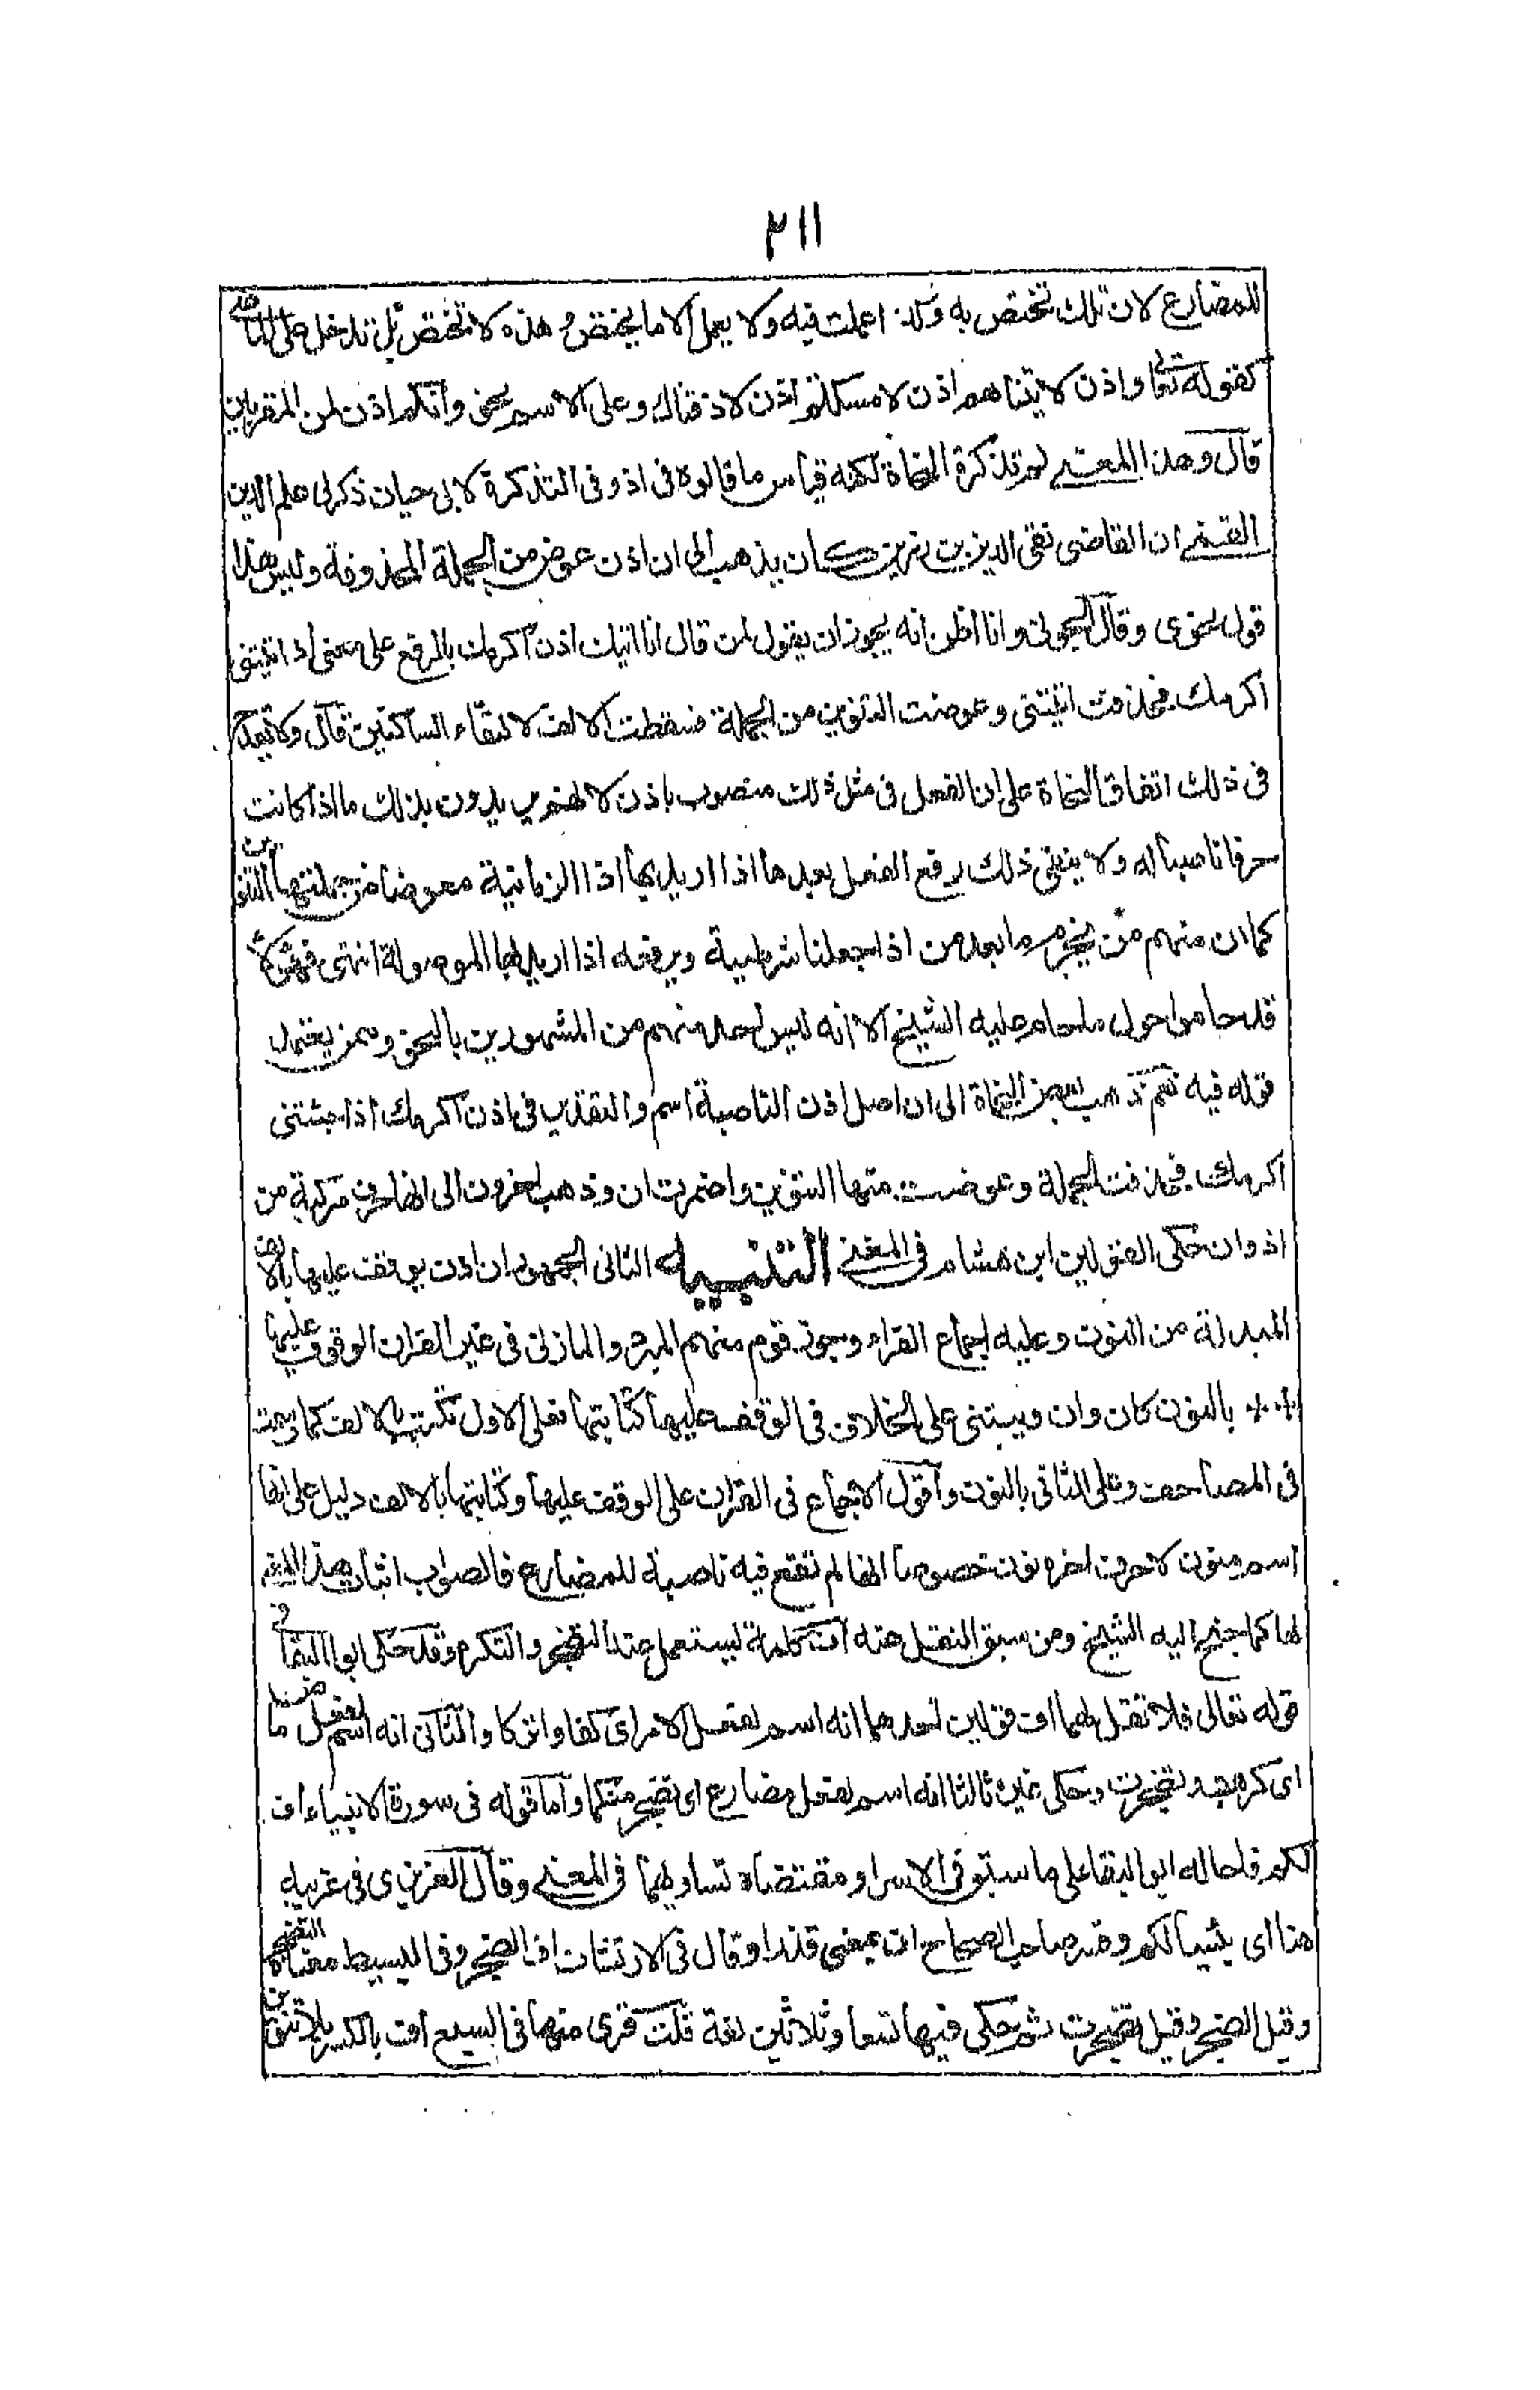 ٢١١
للمضارع لان تلك تختص به وكذا اعملت فيه ولا يعمل الا ما يختص وهذه لا تختص بل تدخل على الماضي
كقوله تعالى واذن لاتيناهم اذن لامسكتم اذن لاذقناك وعلى الاسم نحو وانكم اذن لمن المقربين
قال وهذا المعنى لم تذكره النحاة لكنه قياس ما قالوه فى اذ وفى التذكرة لابى حيان ذكر لى علم الدين
القمنى ان القاضى تقى الدين بن رزين كان يذهب الى ان اذن عوض من الجملة المحذوفة وليس هذا
قول نحوى وقال الجوينى وانا اظن انه يجوز ان يقول لمن قال انا اتيك اذن اكرمك بالرفع على معنى اذا اتيتنى
اكرمك فحذفت اتيتنى وعوضت التنوين من الجملة فسقطت الالف لالتقاء الساكنين قال ولا يقدح
فى ذلك اتفاق النحاة على ان الفعل فى مثل ذلك منصوب باذن لانهم يريدون بذلك ما اذا كانت
حرفا ناصبا له ولا ينفى ذلك رفع الفعل بعدها اذا اريد بها اذا الزمانية معوضا من جملتها التنوين
كما ان منهم من يجزم ما بعد من اذا جعلنا شرطية ويرفعه اذا اريد بها الموصولة انتهى فهؤلاء
قد حاموا حول ما حام عليه الشيخ الا انه ليس احد منهم من المشهورين بالنحو وممن يعتمد
قوله فيه نعم ذهب بعض النحاة الى ان اصل اذن الناصبة اسم والتقدير فى اذن اكرمك اذا جئتنى
اكرمك فحذفت الجملة وعوضت منها التنوين واضمرت ان وذهب اخرون الى انها حرف مركبة من
اذ وان حكى القولين ابن هشام فى المغنى التنبيه الثانى الجمهور ان اذن يوقف عليها بالالف
المبدلة من النون وعليه اجماع القراء وجوز قوم منهم المبرد والمازنى فى غير القران الوقوف عليها
بالنون كان وان ويبتنى على الخلاف فى الوقف عليها كتابتها فعلى الاول تكتب بالالف كما رسمت
فى المصاحف وعلى الثانى بالنون واقول الاجماع فى القران على الوقف عليها وكتابتها بالالف دليل على انها
اسم منون لا حرف اخره نون خصوصا انها لم تقع فيه ناصبة للمضارع فالصواب اثبات هذا المعنى
لها كما جنح اليه الشيخ ومن سبق النقل عنه اف كلمة تستعمل عند التضجر والتكره وقد حكى ابوا البقا فى
قوله تعالى فلا تقل لهما اف قولين احدهما انه اسم لفعل الامر اى كفا واتركا والثانى انه اسم لفعل ماض
اى كرهت وتضجرت وحكى غيره ثالثا انه اسم لفعل مضارع اى تضجر منكما واما قوله فى سورة الانبياء اف
لكم فاحاله ابو البقا على ما سبق فى الاسرا ومقتضاه تساويهما فى المعنى وقال العزيزى فى غريبه
هنا اى بئسا لكم وفسر صاحب الصحاح اف بمعنى قذرا وقال فى الارتشاف اف اتضجر وفى البسيط معناه التضجر
وقيل الضجر وقيل تضجرت ثم حكى فيها تسعا وثلاثين لغة قلت قرى منها فى السبع اف بالكسر بلا تنوين